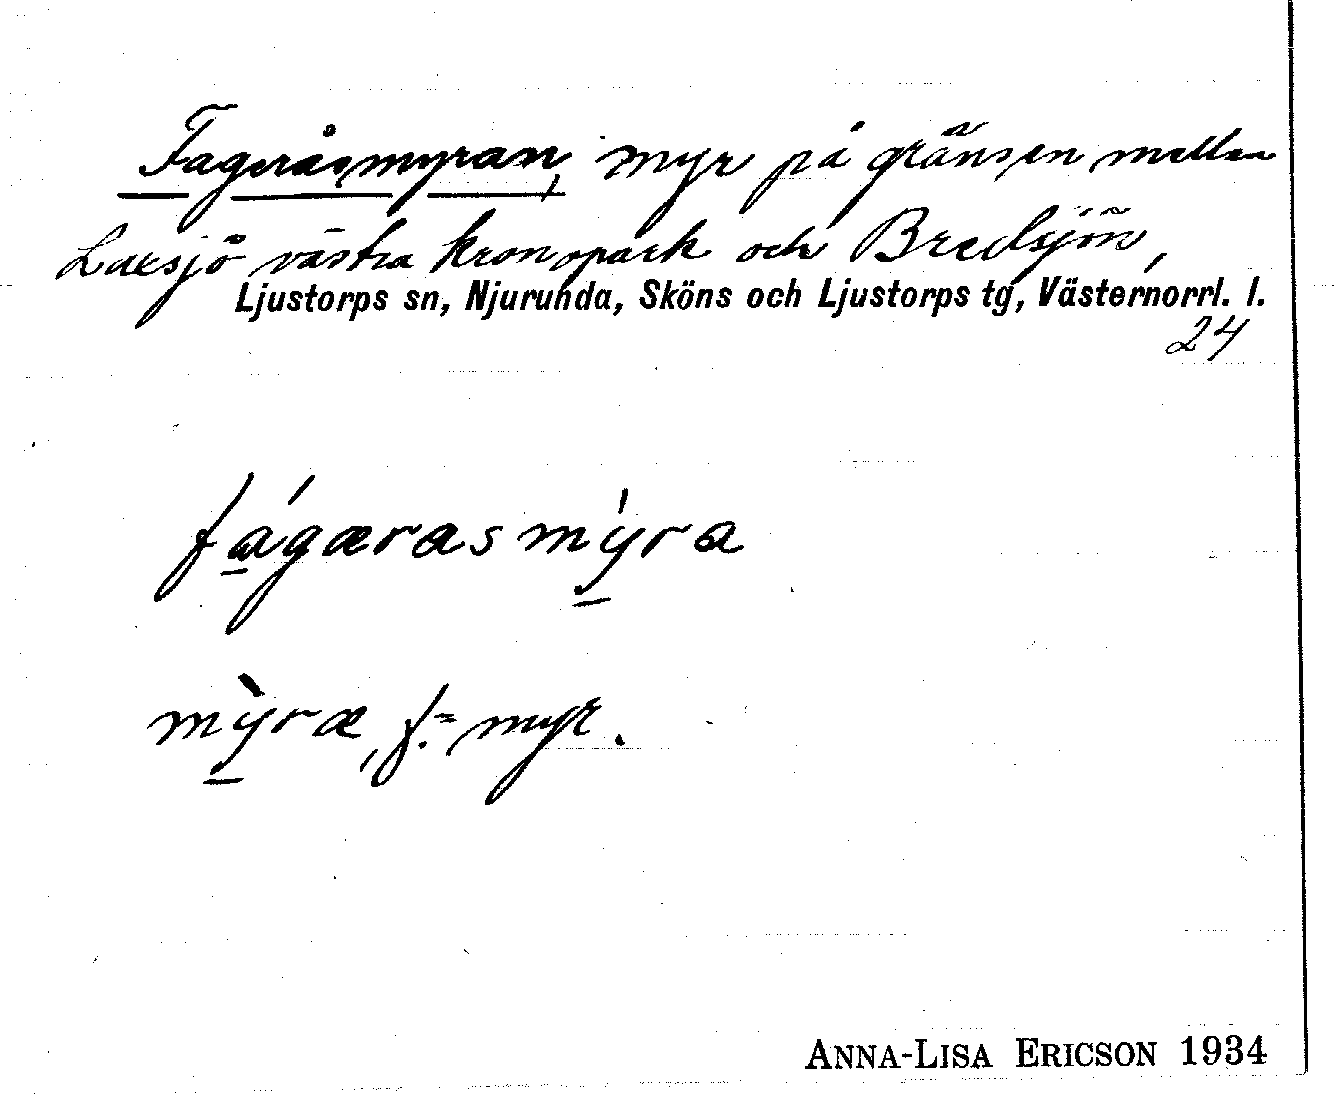 Fageråsmyran, myr på gränsen mellan
Laxsjö västra kronopark och Bredsjön,
Ljustorps sn, Njurunda, Sköns och Ljustorps tg, Västernorrl. l.
24
fágærasmýra
mỳræ, f.= myr.
ANNA-LISA ERICSON 1934